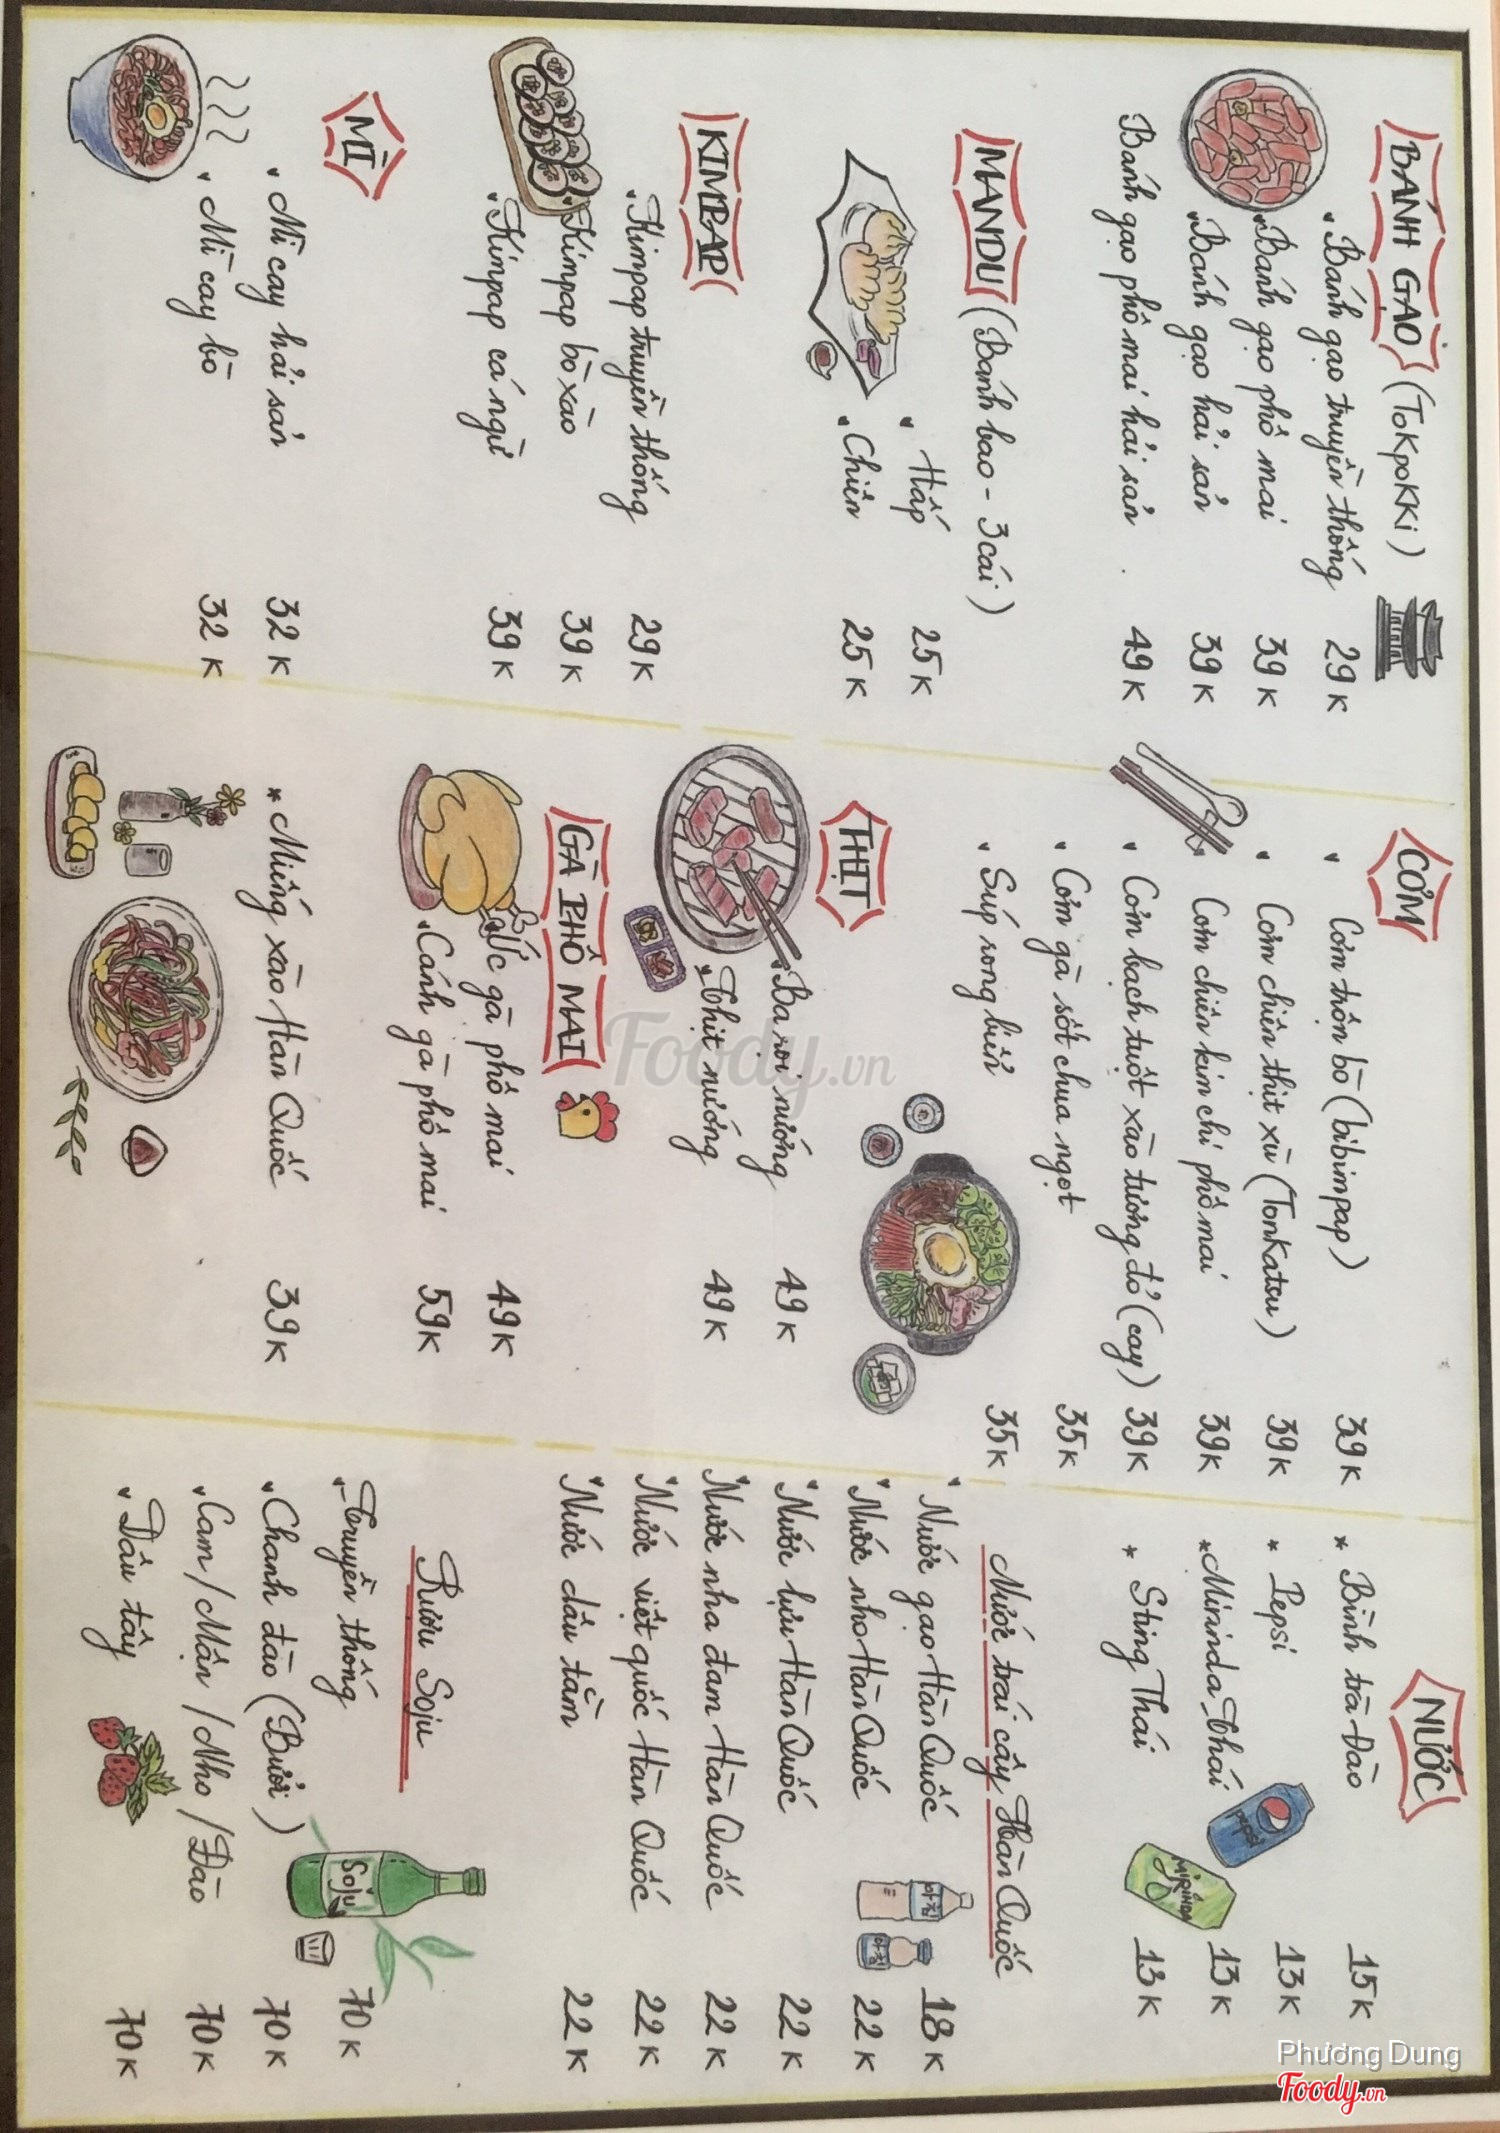 BÁNH GẠO (ToKpoKKi)
Bánh gạo truyền thống 29K
Bánh gạo phô mai 39K
Bánh gạo hải sản 39K
Bánh gạo phô mai hải sản 49K
MANDU (Bánh bao - 3 cái)
Hấp 25K
Chiên 25K
KIMPAP
Kimpap truyền thống 29K
Kimpap bò xào 39K
Kimpap cá ngừ 39K
MÌ
Mì cay hải sản 32K
Mì cay bò 32K
CƠM
Cơm trộn bò (bibimpap) 39K
Cơm chiên thịt xù (Tonkatsu) 39K
Cơm chiên kim chi phô mai 39K
Cơm bạch tuột xào tương đỏ (cay) 39K
Cơm gà sốt chua ngọt 35K
Súp rong biển 35K
THỊT
Ba rọi nướng 49K
Thịt nướng 49K
GÀ PHÔ MAI
Ức gà phô mai 49K
Cánh gà phô mai 59K
* Miếng xào Hàn Quốc 39K
NƯỚC
* Bình trà Đào 15K
* Pepsi 13K
* Mirinda Thái 13K
* Sting Thái 13K
pepsi
MIRINDA
Nước trái cây Hàn Quốc
Nước gạo Hàn Quốc 18K
Nước nho Hàn Quốc 22K
Nước lựu Hàn Quốc 22K
Nước nha đam Hàn Quốc 22K
Nước việt quốc Hàn Quốc 22K
Nước dâu tằm 22K
아침
아침
Rượu Soju
Truyền thống 70K
Chanh đào (Bưởi) 70K
Cam / Mận / Nho / Đào 70K
Dâu tây 70K
Soju
Foody.vn
Phương Dung
Foody.vn